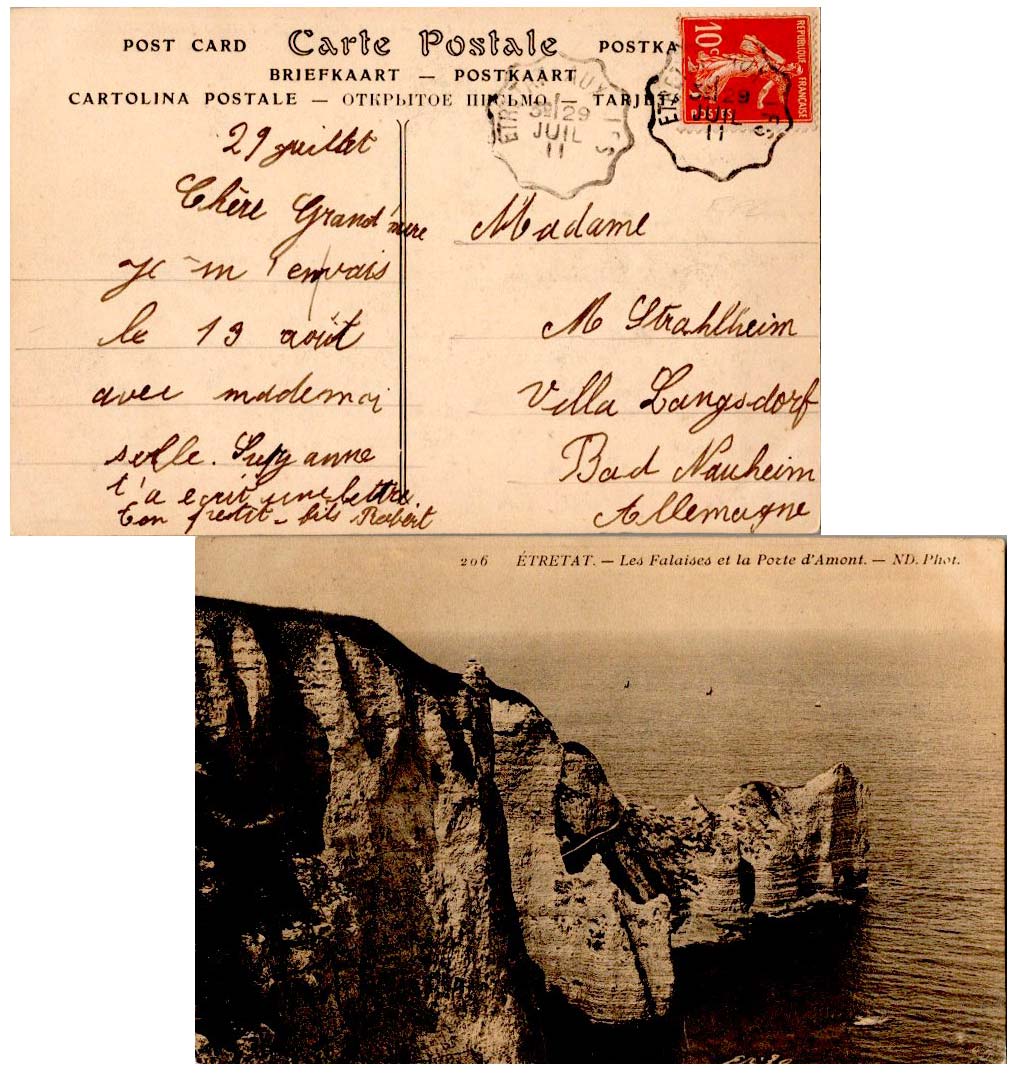 POST CARD Carte Postale POSTKA
BRIEFKAART — POSTKAART
CARTOLINA POSTALE — ОТКРЫТОЕ ПИСЬМО — TARJETA
REPUBLIQUE FRANÇAISE
10 c
POSTES
29
JUIL
11
29
JUIL
11
29 juillet
Chère Grand'mère
je m'envais
le 13 août
avec mademoi
selle. Suzanne
t'a ecrit une lettre.
Ton petit-fils Robert
Madame
M Strahlheim
Villa Langsdorf
Bad Nauheim
Allemagne
206 ÉTRETAT. — Les Falaises et la Porte d'Amont. — ND. Phot.